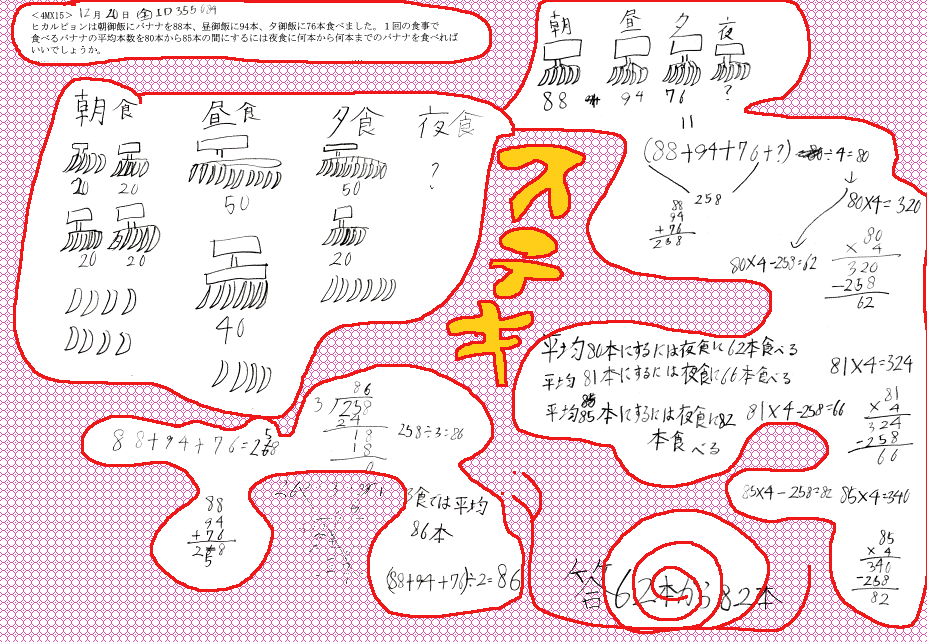 <4MX15> 12月20日(金)ID355689
ヒカルピョンは朝御飯にバナナを88本、昼御飯に94本、夕御飯に76本食べました。1回の食事で
食べるバナナの平均本数を80本から85本の間にするには夜食に何本から何本までのバナナを食べれば
いいでしょうか。
朝 昼 夕 夜
88 94 76 ?
=
(88+94+76+?) ÷4=80
258
88
94
+76
258
80×4=320
80×4-258=62
80
× 4
320
-258
62
朝食 昼食 夕食 夜食
20 20 50 50 ?
20 20 40 20
ステキ
平均80本にするには夜食に62本食べる
平均81本にするには夜食に66本食べる
平均85本にするには夜食に82
本食べる
81×4=324
81×4-258=66
81
× 4
324
-258
66
85×4-258=82 85×4=340
85
× 4
340
-258
82
88+94+76=258
88
94
+76
258
86
3)258
24
18
18
0
258÷3=86
3食では平均
86本
(88+94+76)÷2=86
答62本から82本